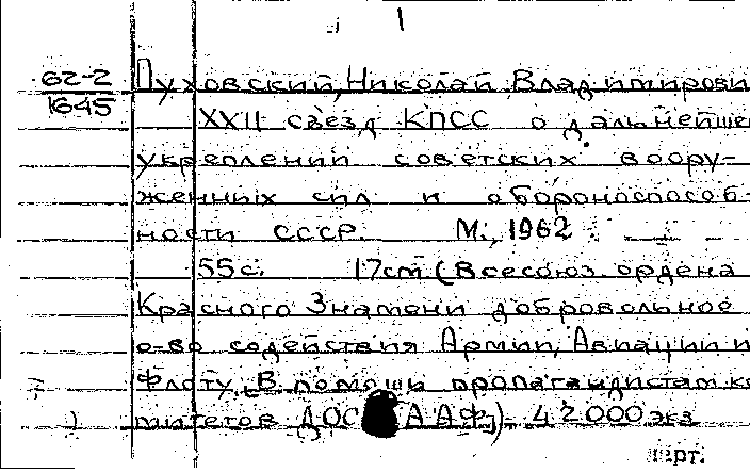 1
62-2
1645
Пуховский, Николай Владимирови
XXII съезд КПСС о дальнейше
укреплении советских воору-
женных сил и обороноспособ-
ности СССР. М., 1962
55с. 17cm (Всесоюз. ордена
Красного Знамени добровольное
о-во содействия Армии, Авиации и
Флоту. В помощь пропагандистам к
митетов ДОС ААФ). 42000 экз
черт.